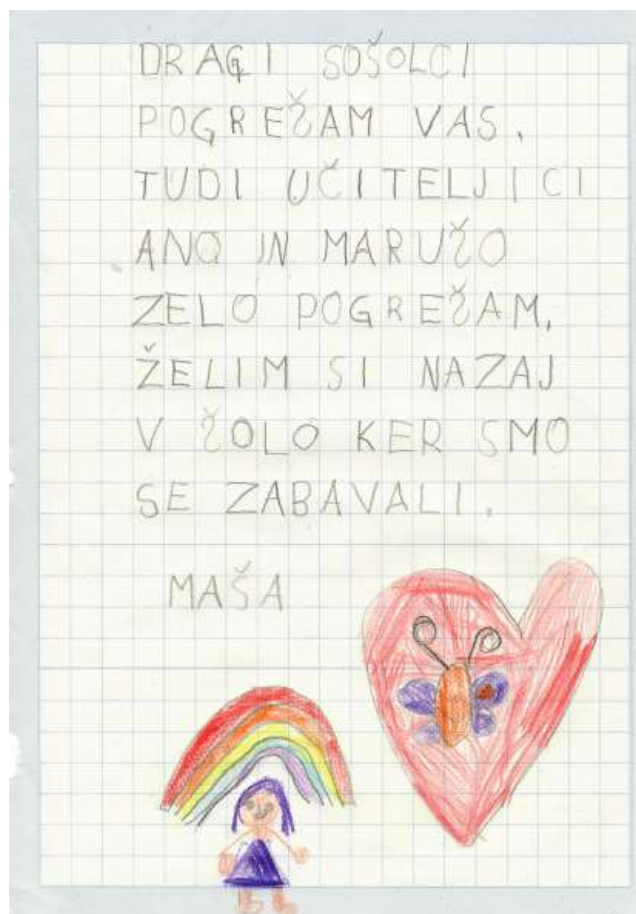 DRAGI SOŠOLCI
POGREŠAM VAS.
TUDI UČITELJICI
ANO IN MARUŠO
ZELO POGREŠAM.
ŽELIM SI NAZAJ
V ŠOLO KER SMO
SE ZABAVALI.
MAŠA